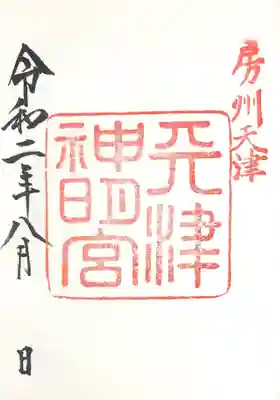 房州天津
天津
神明宮
令和二年八月
日